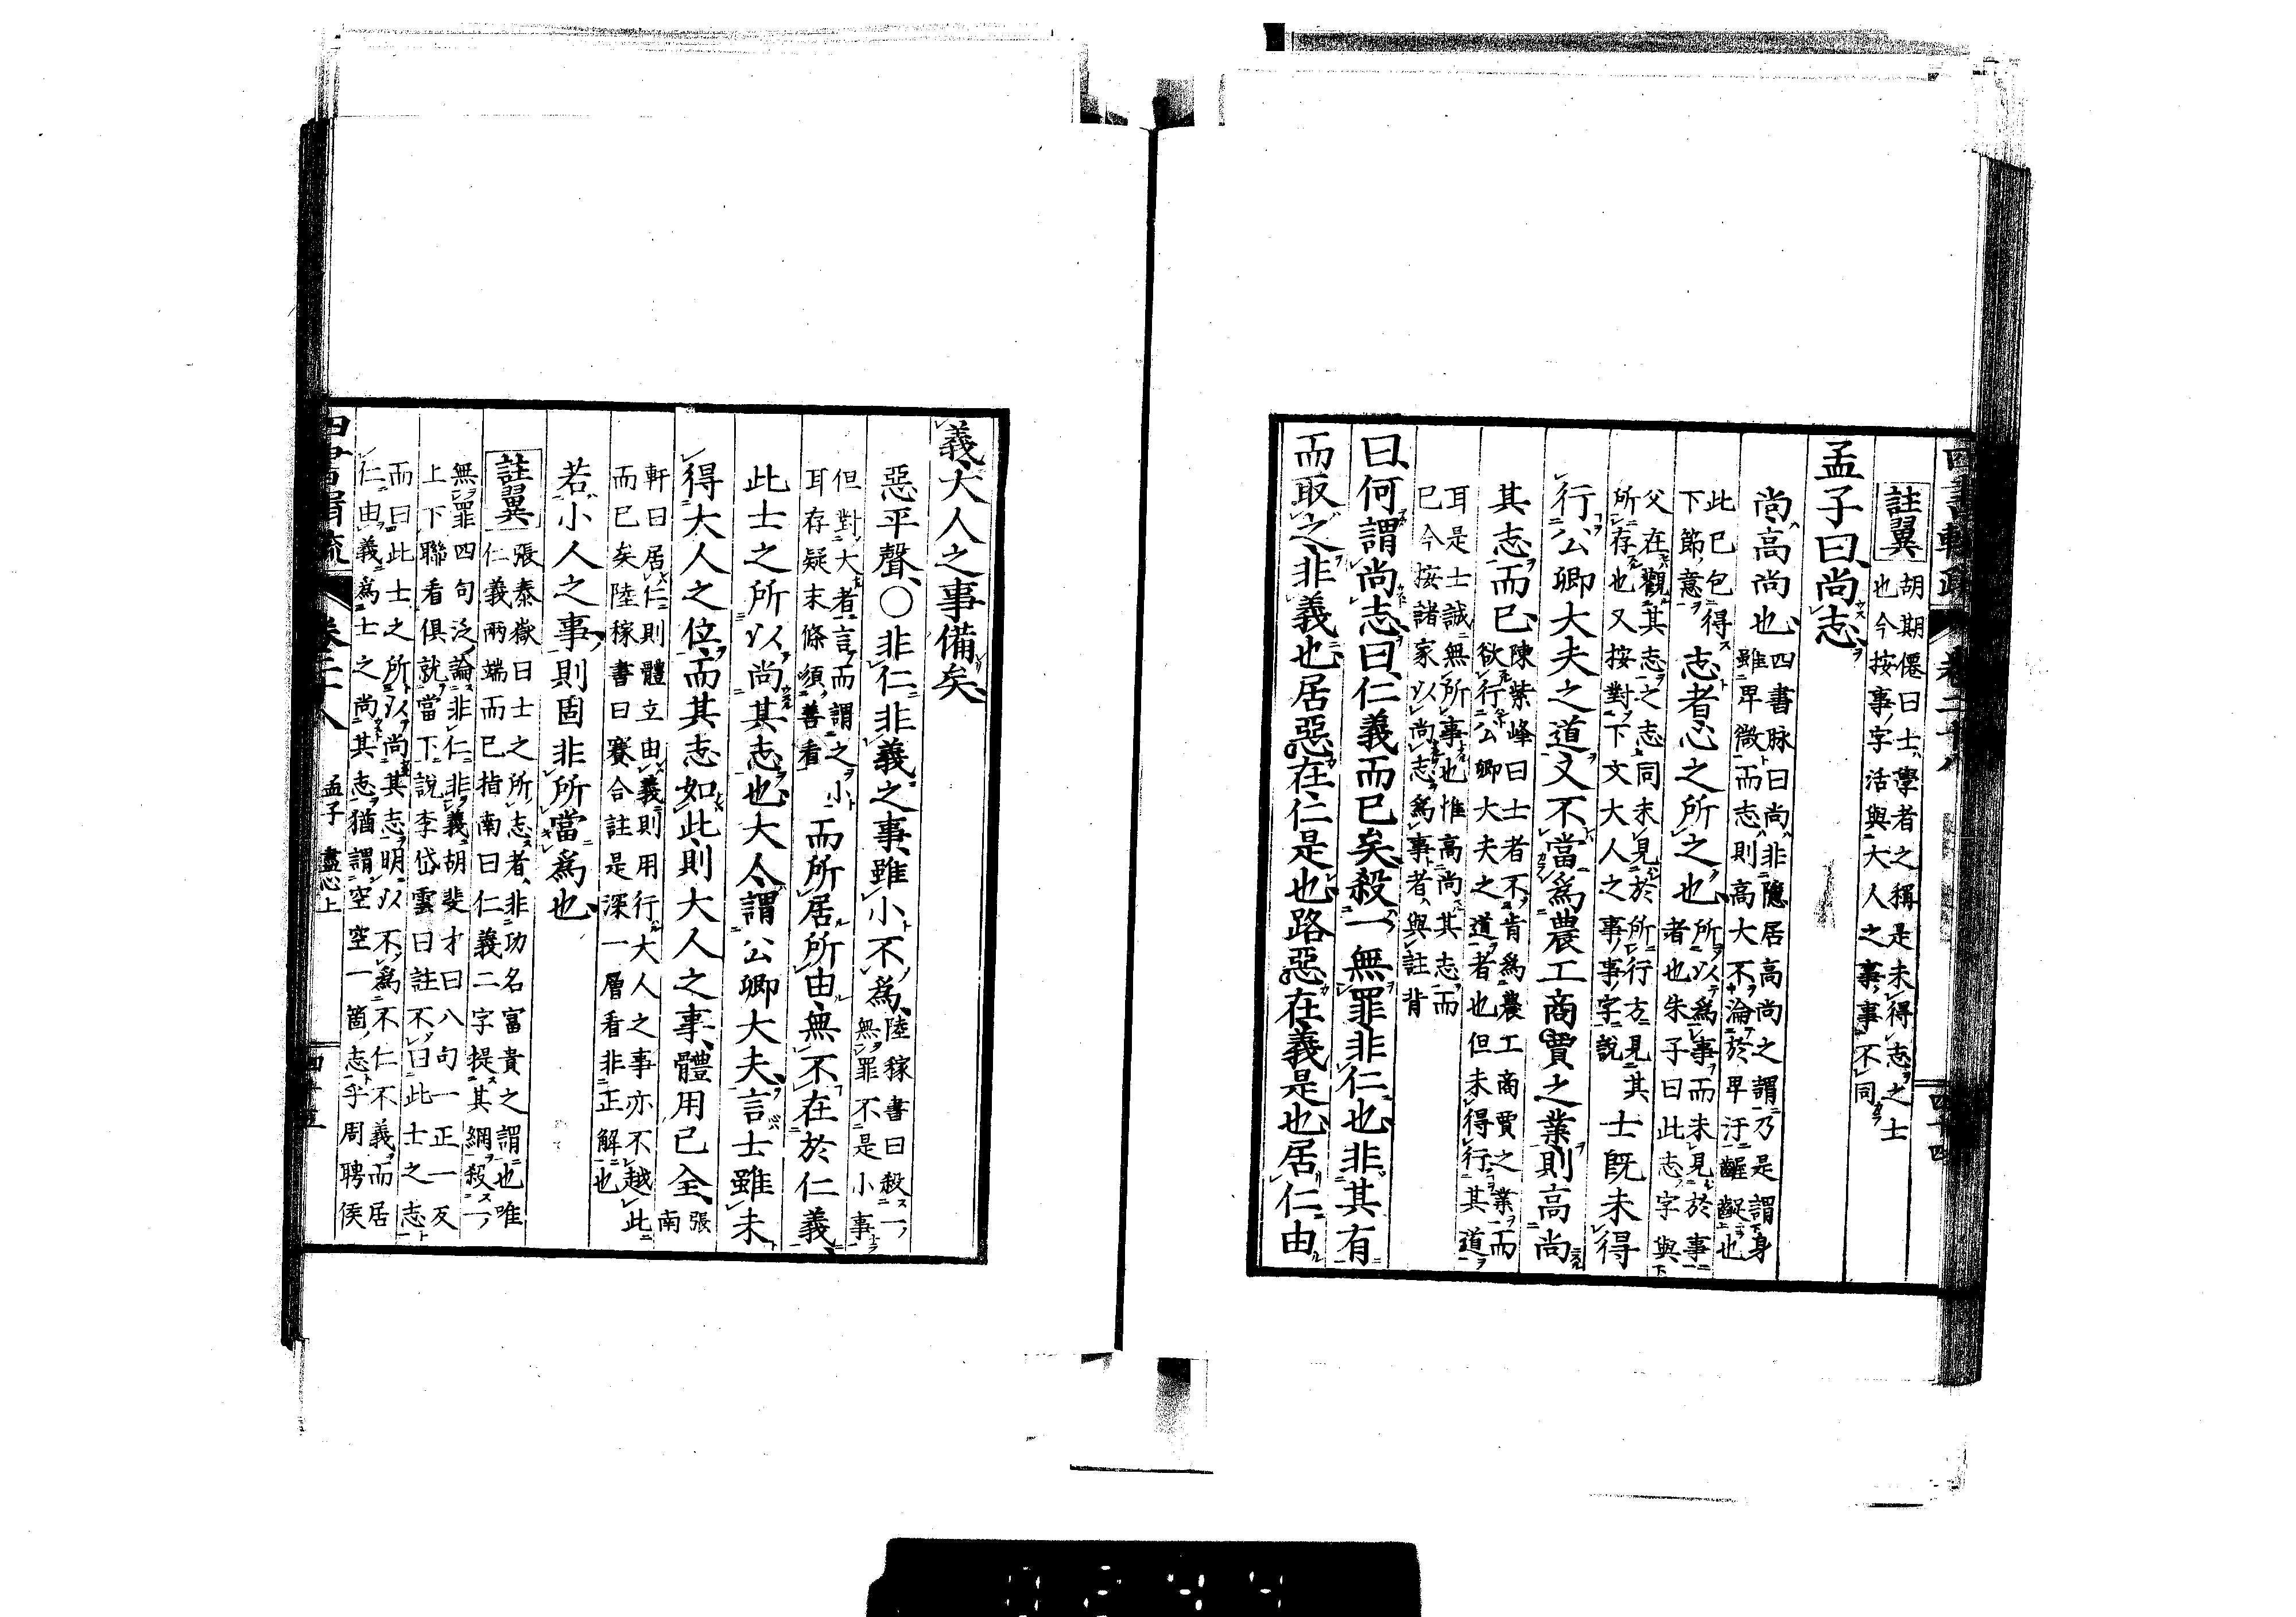 四書輯疏 卷二十八 四十四
註翼 胡期僊曰士學者之稱是未得志之士
也今按事字活與大人之事事不同
孟子曰尚志
尚高尚也四書脉曰尚非隱居高尚之謂乃是謂身
雖卑微而志則高大不淪於卑汙齷齪也
此已包得
下節意
志者心之所之也
所以爲事而未見於事
者也朱子曰此志字與下
父在觀其志之志同未見於所行方見其
所存也又按對下文大人之事事字說
士既未得
行公卿大夫之道又不當爲農工商賈之業則高尚
其志而已
陳紫峰曰士者不肯爲農工商賈之業而
欲行公卿大夫之道者也但未得行其道
耳是士誠無所事也惟高尚其志而
已今按諸家以尚志爲事者與註背
曰何謂尚志曰仁義而已矣殺一無罪非仁也非其有
而取之非義也居惡在仁是也路惡在義是也居仁由
義大人之事備矣
惡平聲○非仁非義之事雖小不爲
陸稼書曰殺一
無罪不是小事
但對大者言而謂之小
耳存疑末條須善看
而所居所由無不在於仁義
此士之所以尚其志也大人謂公卿大夫言士雖未
得大人之位而其志如此則大人之事體用已全
張
南
軒曰居仁則體立由義則用行大人之事亦不越此
而已矣陸稼書曰賽合註是深一層看非正解也
若小人之事則固非所當爲也
註翼 張泰嶽曰士之所志者非功名富貴之謂也唯
仁義兩端而已指南曰仁義二字提其綱殺一
無罪四句泛論非仁非義胡斐才曰八句一正一反
上下聯看俱就當下說李岱雲曰註不曰此士之志
而曰此士之所以尚其志明以不爲不仁不義而居
仁由義爲士之尚其志猶謂空空一箇志乎周聘侯
四書輯疏 卷二十八 孟子 盡心上 四十五